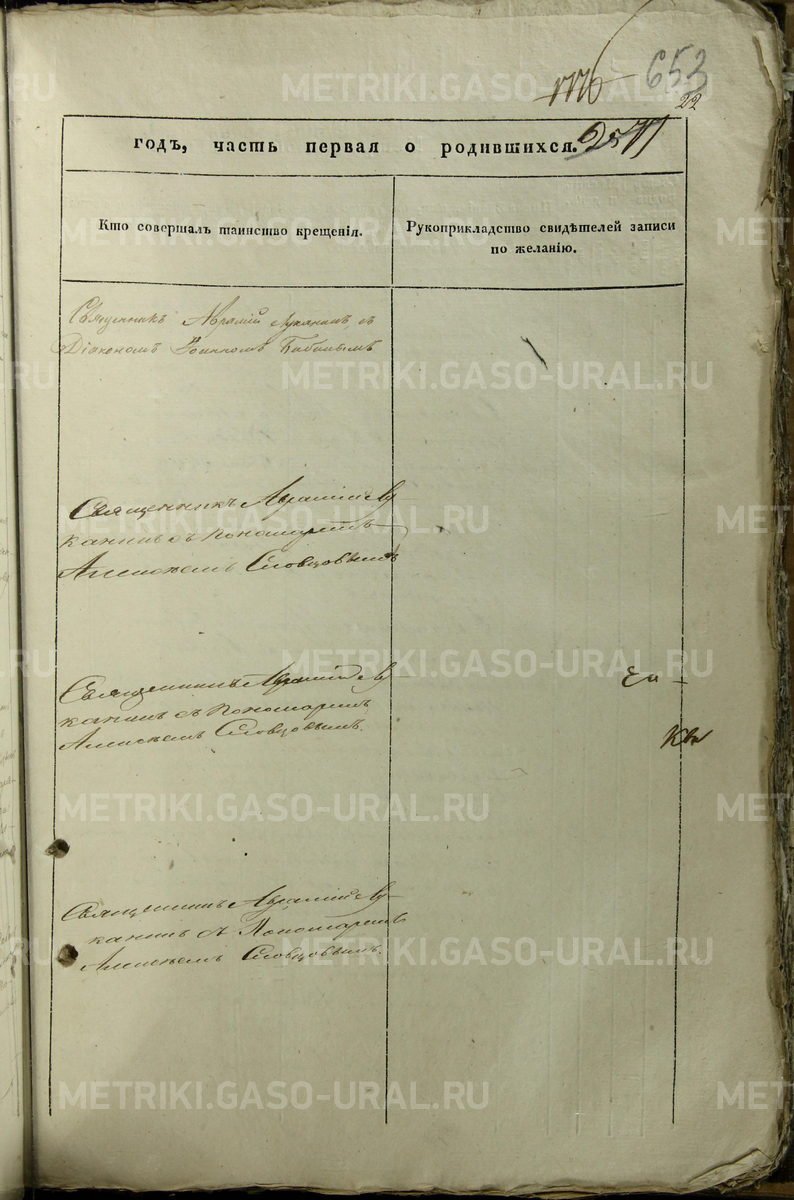 1776
653
22
годъ, часть первая о родившихся.
Кто совершалъ таинство крещенія.
Рукоприкладство свидѣтелей записи
по желанію.
Священникъ Аврамій Луканинъ съ
Діакономъ Іоанномъ
Священникъ Аврамій Лу
канинъ съ Пономаремъ
Алексѣемъ Словцовымъ
Священникъ Аврамій Лу
канинъ съ Пономаремъ
Алексѣемъ Словцовымъ.
Священникъ Аврамій Лу-
канинъ съ Пономаремъ
Алексѣемъ Словцовымъ.
METRIKI.GASO-URAL.RU